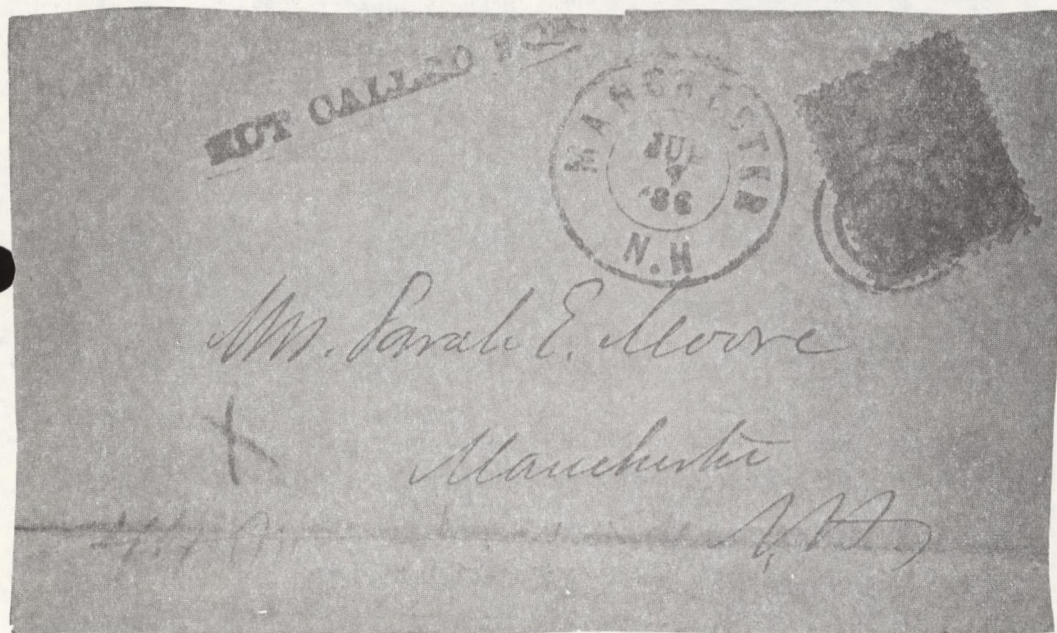 NOT CALLED FOR.
MANCHESTER
7
'86
N.H
Mrs. Sarah E. Moore
X
Manchester
N.H.